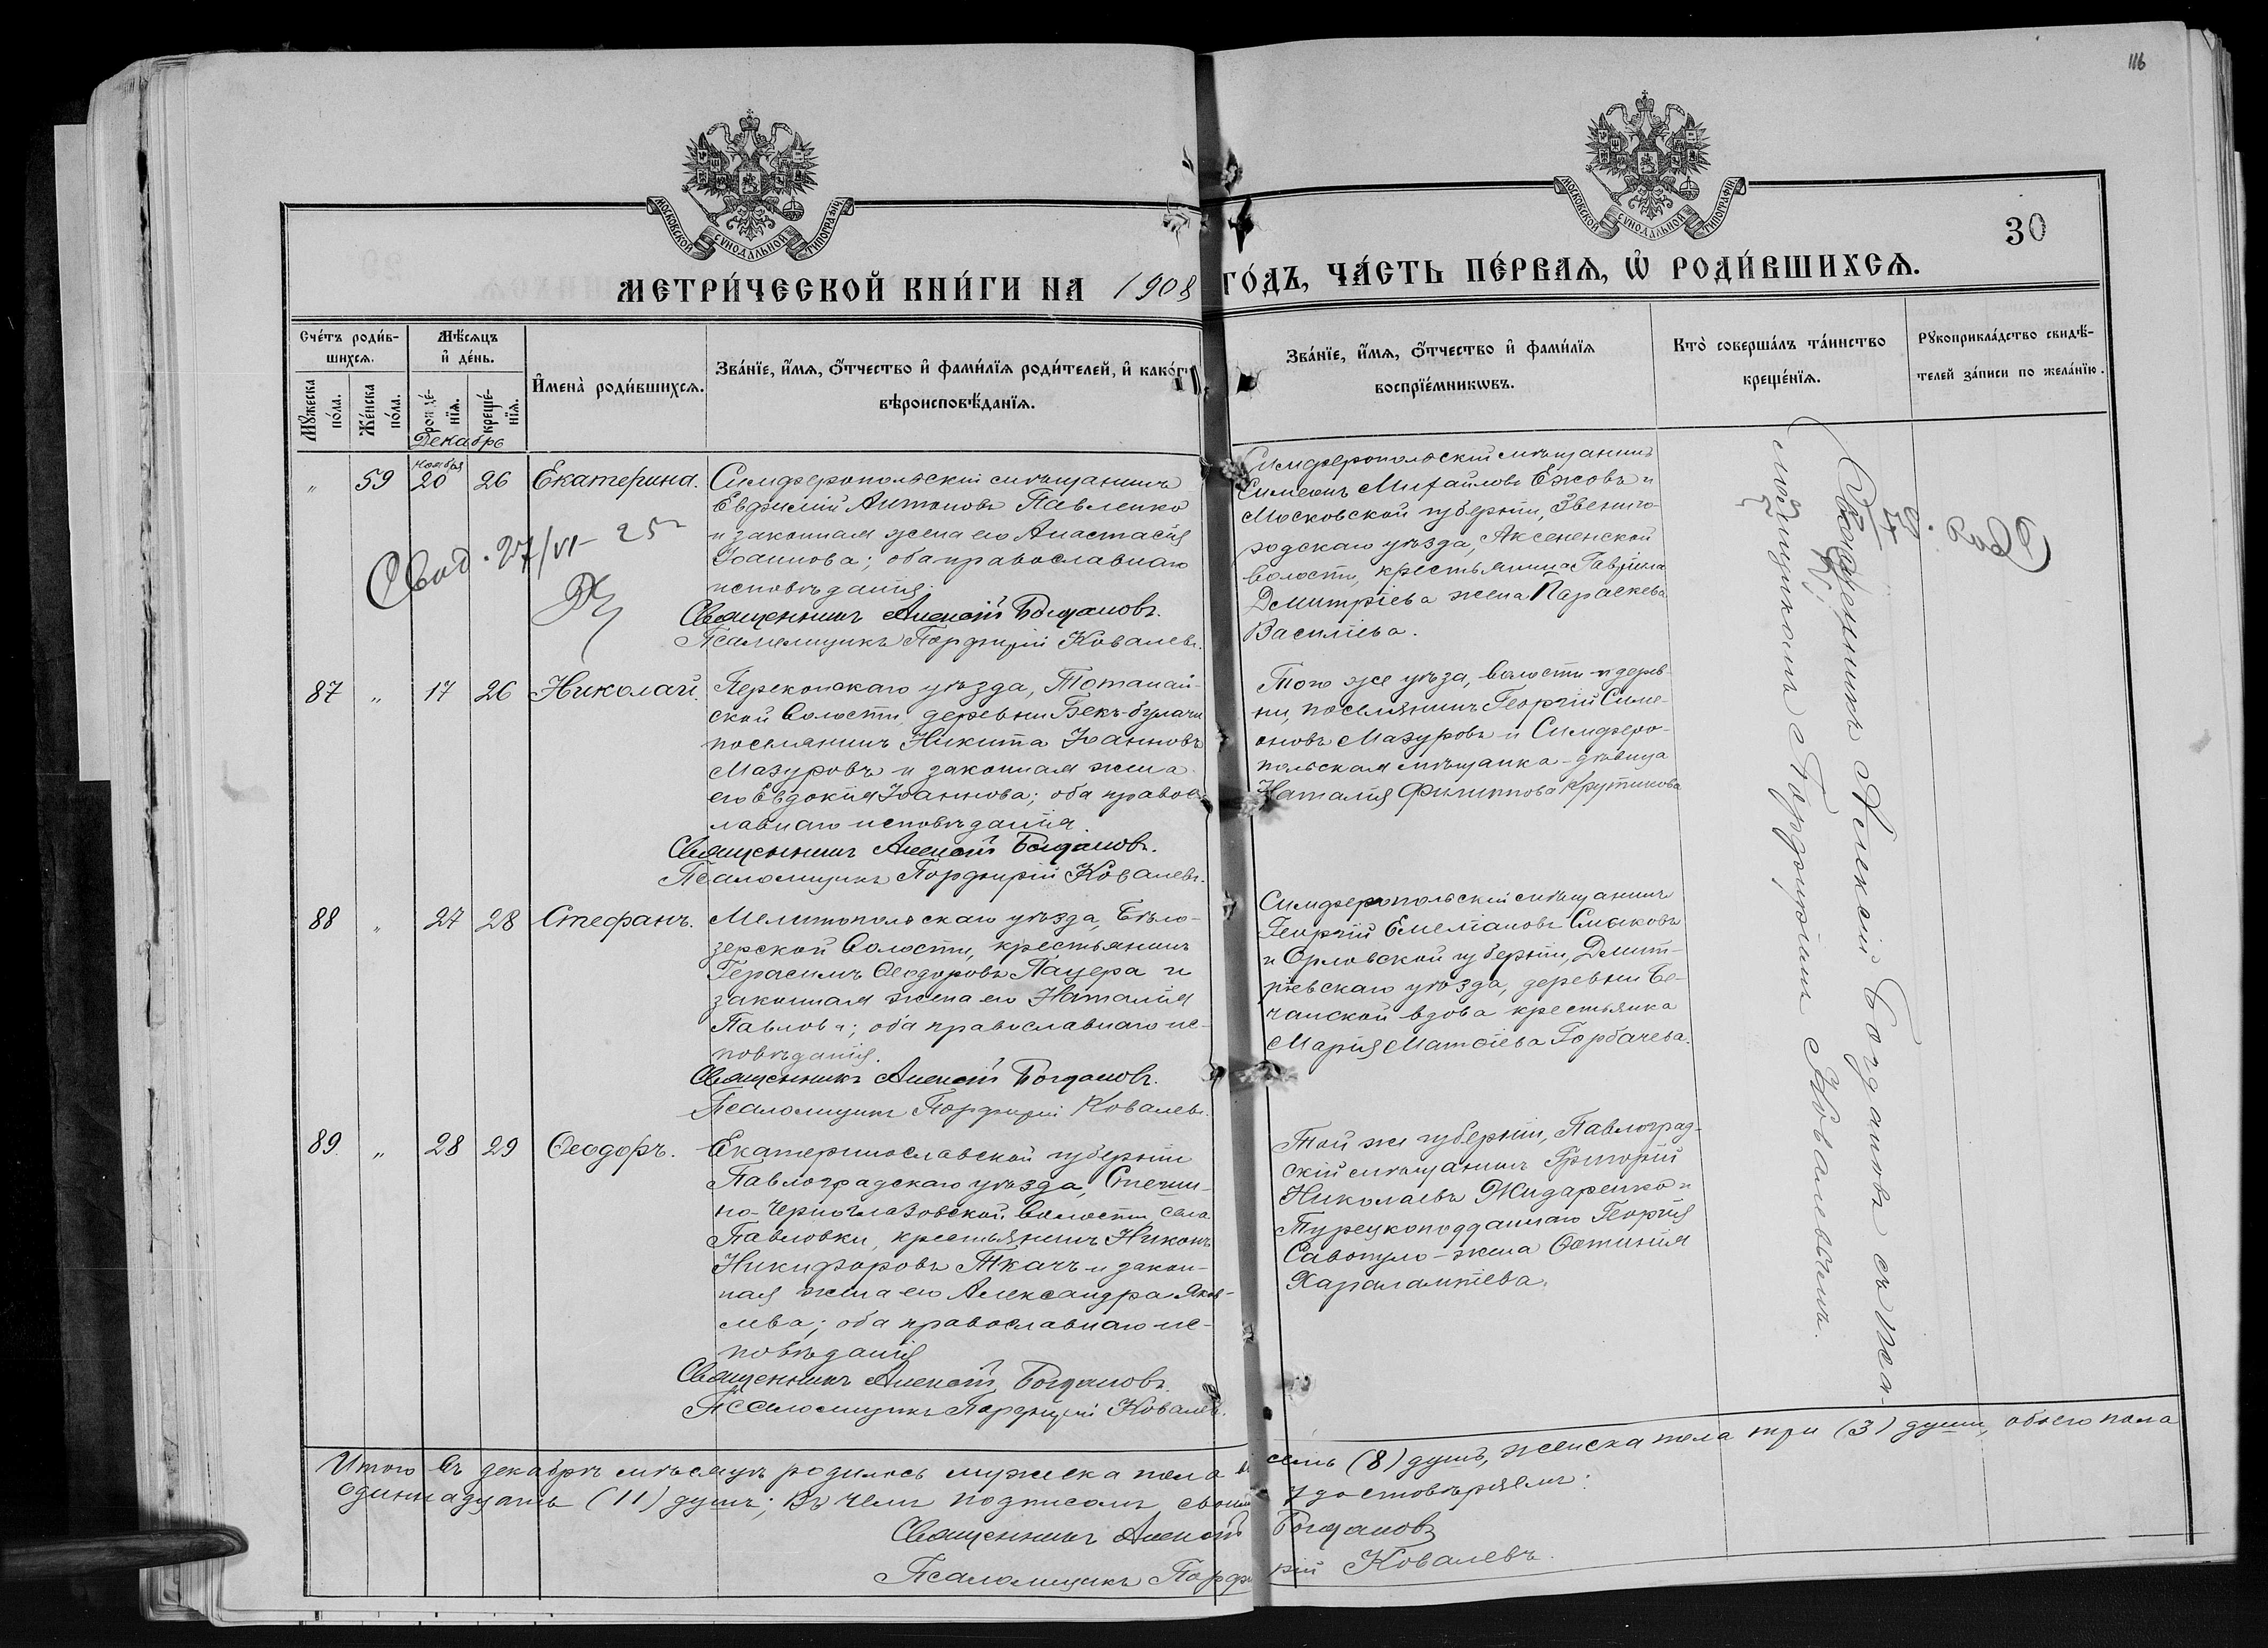 116
МОСКОВСКОЙ СѴНОДАЛЬНОЙ ТИПОГРАФІИ
МОСКОВСКОЙ СѴНОДАЛЬНОЙ ТИПОГРАФІИ
30
МЕТРИ́ЧЕСКОЙ КНИ́ГИ НА 1908 ГО́ДЪ, ЧА́СТЬ ПЕ́РВАѦ, Ѡ҆ РОДИ́ВШИХСѦ.
Сче́тъ роди́в-
шихсѧ.
Мꙋ́жеска
по́ла.
Же́нска
по́ла.
Мѣ́сѧцъ
и҆ де́нь.
рожде́-
нїѧ.
креще́-
нїѧ.
И҆мена̀ роди́вшихсѧ.
Зва́нїе, и҆́мѧ, ѻ҆́тчество и҆ фами́лїѧ роди́телей, и҆ како́гѡ
вѣроисповѣ́данїѧ.
Зва́нїе, и҆́мѧ, ѻ҆́тчество и҆ фами́лїѧ
воспрїе́мникѡвъ.
Кто̀ соверша́лъ та́инство
креще́нїѧ.
Рꙋкоприкла́дство свидѣ́-
телей за́писи по жела́нїю.
Декабрь
" 59 Ноября 20 26 Екатерина.
Симферопольскій мѣщанинъ
Евфимій Антоновъ Павленко
и законная жена его Анастасія
Іоаннова; оба православнаго
исповѣданія.
Священникъ Алексій Богдановъ.
Псаломщикъ Порфирій Ковалевъ.
Симферопольскій мѣщанинъ
Симеонъ Михайловъ Ежовъ и
Московской губерніи, Звениго-
родскаго уѣзда, Аксененской
волости, крестьянина Гавріила
Дмитріева жена Параскева
Васильева.
Свид. 27/VI-25
87 " 17 26 Николай.
Перекопскаго уѣзда, Тотанай-
ской волости, деревни Бекъ-булачи
поселянинъ Никита Іоанновъ
Мазуровъ и законная жена
его Евдокія Іоаннова; оба правос-
лавнаго исповѣданія.
Священникъ Алексій Богдановъ.
Псаломщикъ Порфирій Ковалевъ.
Того же уѣза, волости и дерев-
ни, поселянинъ Георгій Симе-
оновъ Мазуровъ и Симферо-
польская мѣщанка-дѣвица
Наталія Филиппова Крутикова
88 " 27 28 Стефанъ.
Мелитопольскаго уѣзда, Бѣло-
зерской волости, крестьянинъ
Герасимъ Ѳеодоровъ Пацера и
законная жена его Наталія
Павлова; оба православнаго ис-
повѣданія.
Священникъ Алексій Богдановъ.
Псаломщикъ Порфирій Ковалевъ.
Симферопольскій мѣщанинъ
Георгій Емеліановъ Смыковъ
и Орловской губерніи, Дмит-
ріевскаго уѣзда, деревни Бе-
чанской вдова крестьянка
Марія Матѳіева Горбачева.
89. " 28 29 Ѳеодоръ.
Екатеринославской губерніи
Павлоградскаго уѣзда,
но-Черноглазовской волости села
Павловки, крестьянинъ Никонъ
Никифоровъ Ткачъ и закон-
ная жена его Александра Яков-
лева; оба православнаго ис-
повѣданія
Священникъ Алексій Богдановъ.
Псаломщикъ Порфирій Ковалевъ.
Той же губерніи, Павлоград-
скій мѣщанинъ Григорій
Николаевъ Жидаренко и
Турецкоподданнаго Георгія
Савопуло-жена Фотинія
Харалампіева.
Священникъ Алексій Богдановъ съ псало-
мщикомъ Порфиріемъ Ковалевымъ.
Итого въ декабрѣ мѣсяцѣ родилось мужеска пола восемь (8) душъ, женска пола три (3) души, обоего пола
одиннадцать (11) душъ; въ чемъ подписомъ своимъ удостовѣряемъ:
Священникъ Алексій Богдановъ
Псаломщикъ Порфирій Ковалевъ.